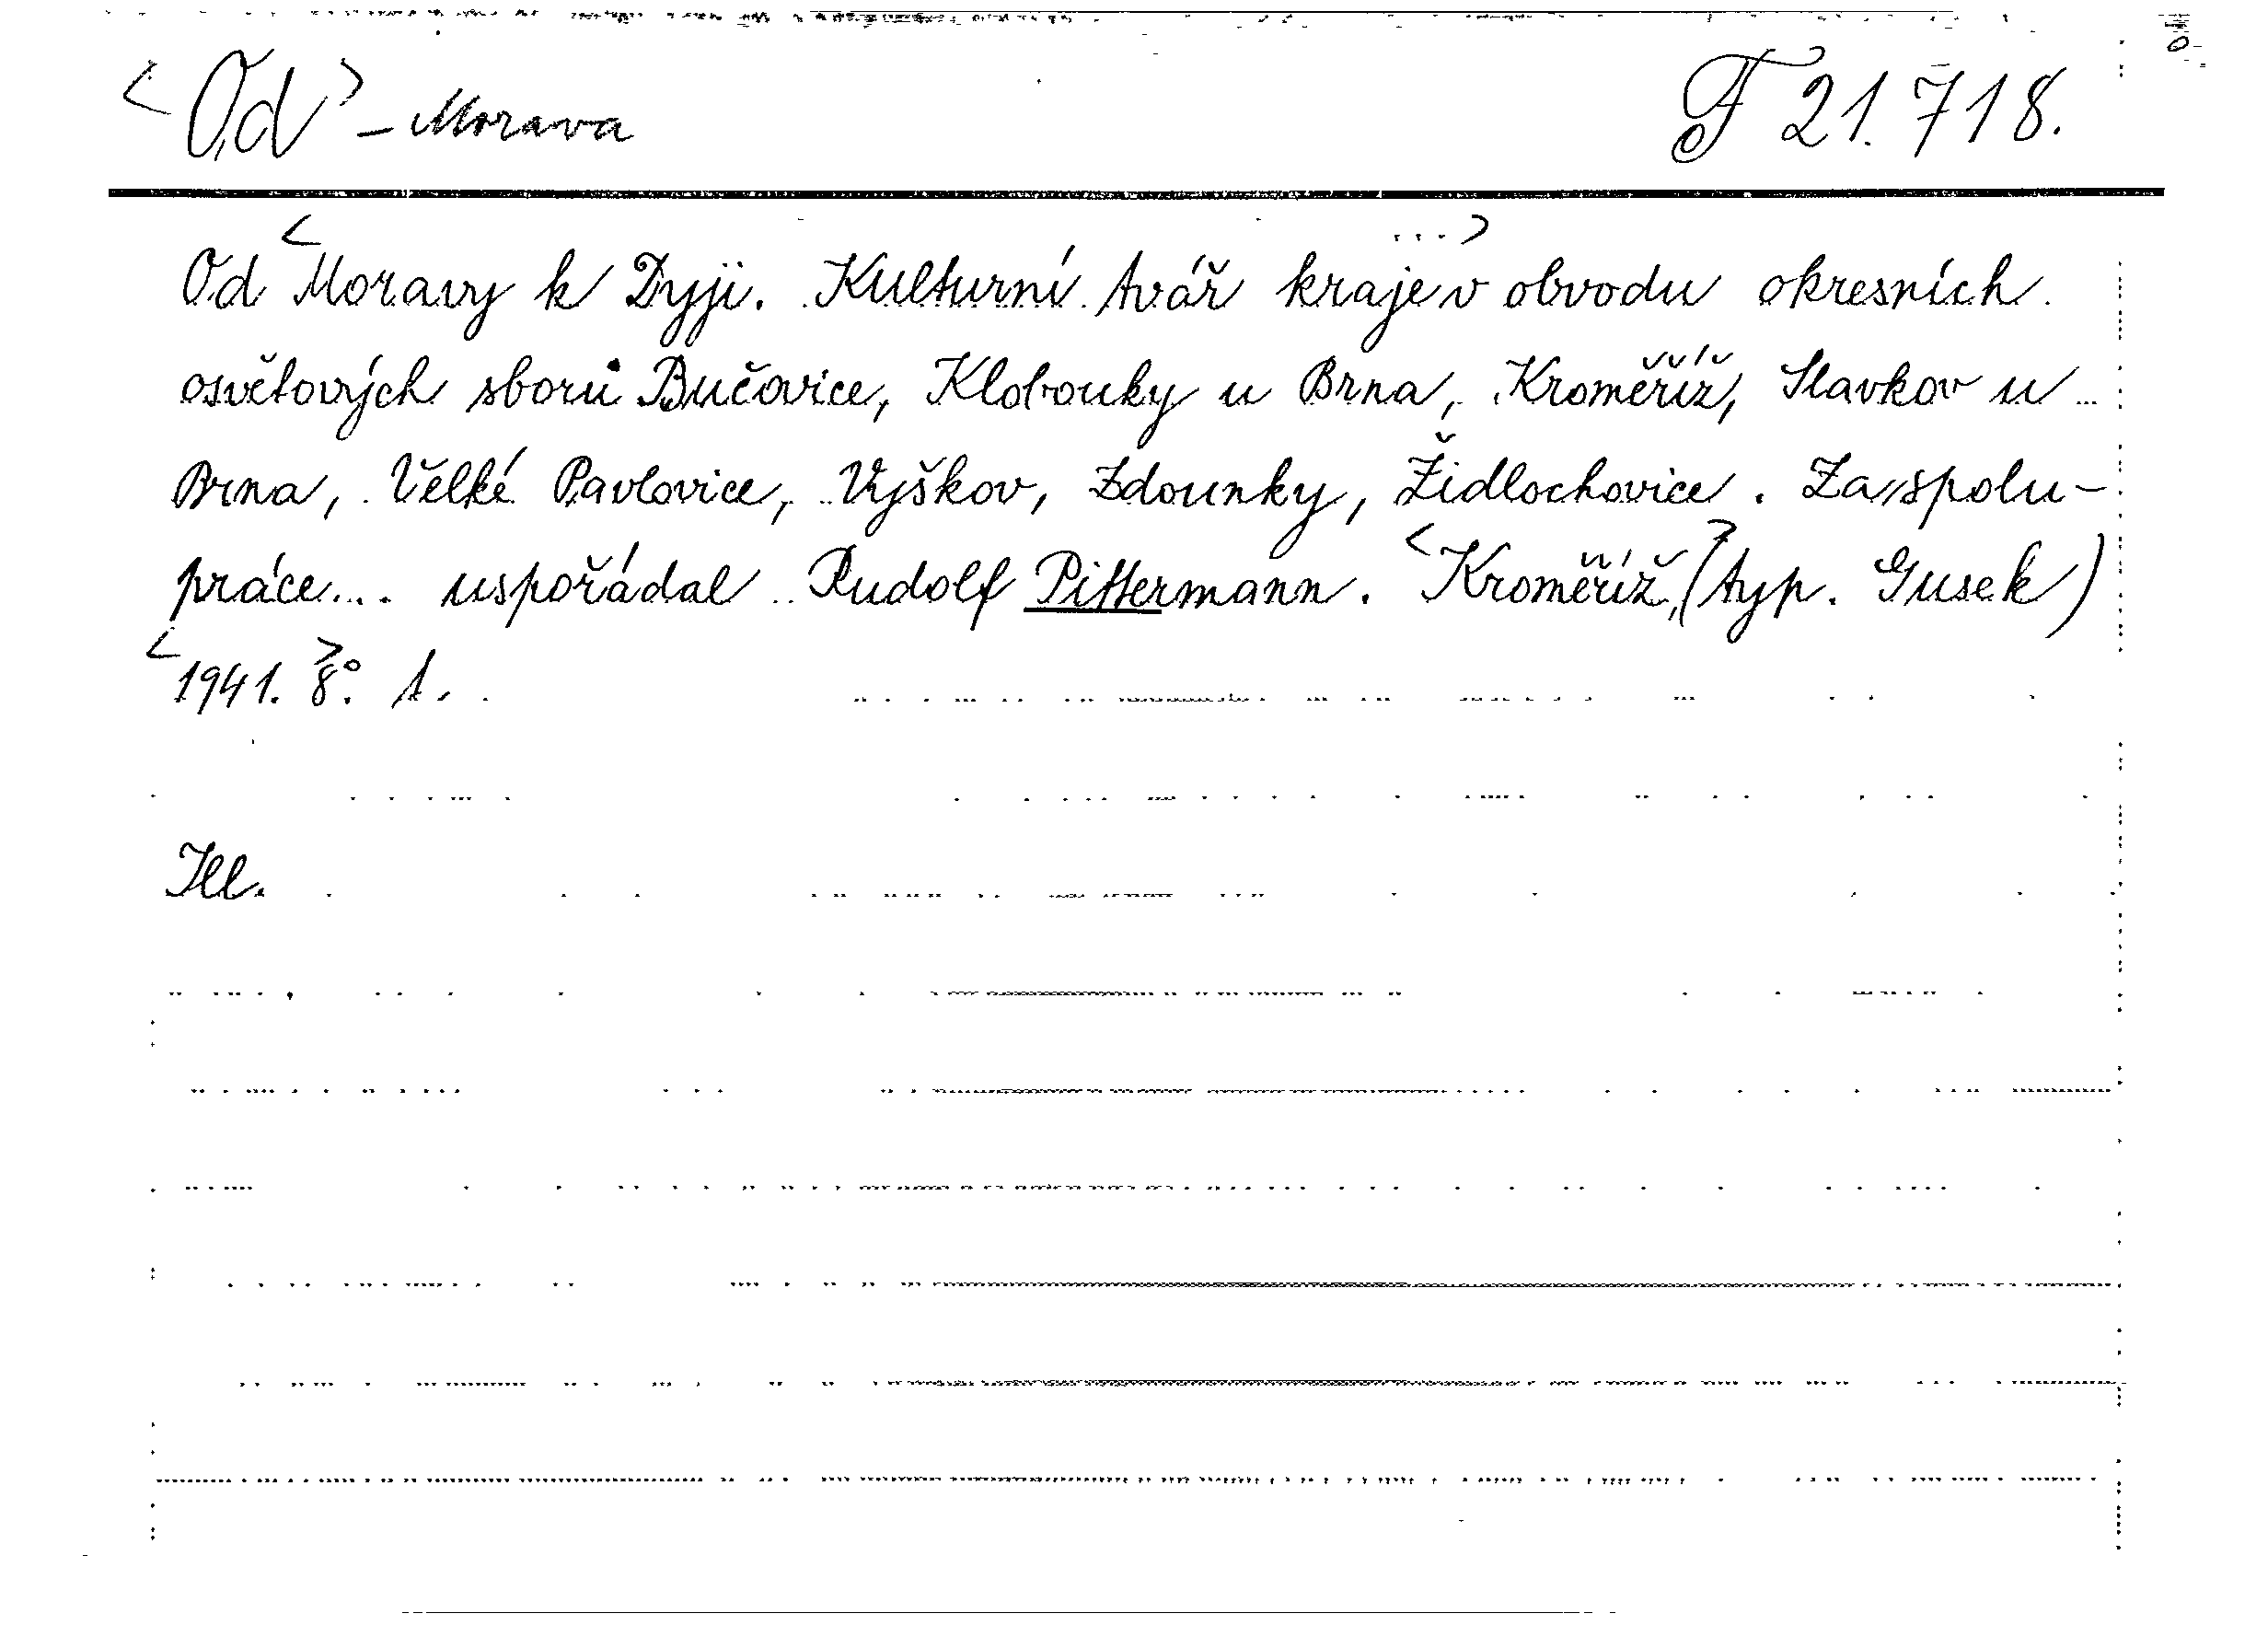 <Od> - Morava F 21.718.
Od <Moravy k Dyji. Kulturní tvář kraje ...> v obvodu okresních
osvětových sborů Bučovice, Klobouky u Brna, Kroměříž, Slavkov u
Brna, Velké Pavlovice, Vyškov, Zdounky, Židlochovice. Za spolu-
práce... uspořádal Rudolf Pittermann. <Kroměříž,> (typ. Gusek)
<1941.> 8°. 1.
Ill.